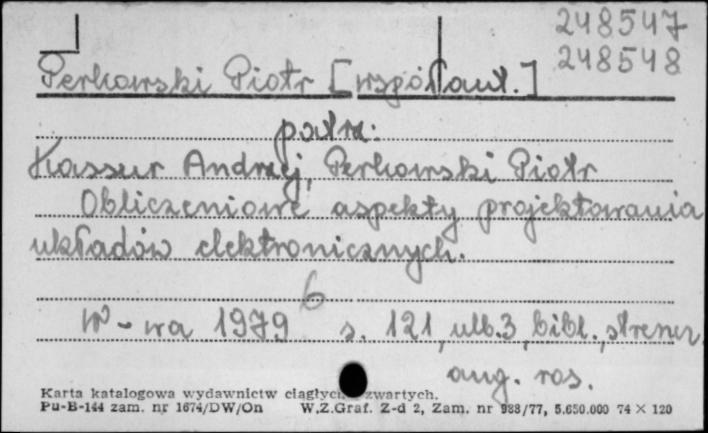 248547
248548
Perkowski Piotr [współaut.]
patrz:
Kassur Andrzej, Perkowski Piotr
Obliczeniowe aspekty projektowania
układów elektronicznych.
6
W-wa 1979 s. 121, ulb.3, bibl., streszcz.
ang. ros.
Karta katalogowa wydawnictw ciągłych zwartych.
Pu-B-144 zam. nr 1674/DW/On W.Z.Graf. Z-d 2, Zam. nr 988/77, 5.650.000 74 × 120